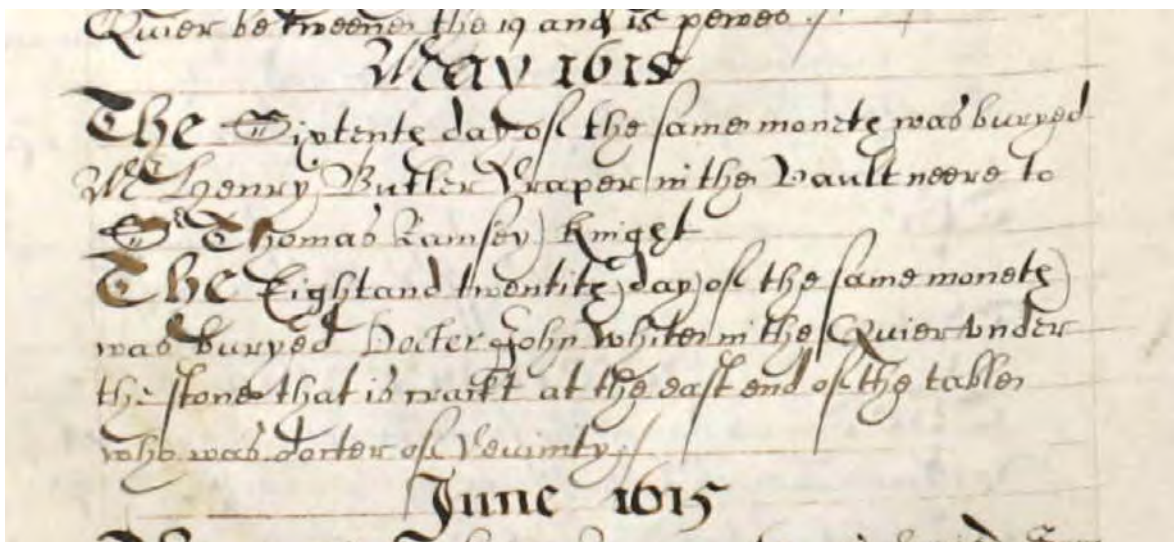 Quier betweene the 19 and 15 pewes
May 1615
The Sixtenth day of the same moneth was buryed
Mr Henry Butler Draper in the Vault neere to
Sr Thomas Ramsey Knight
The Eight and twentith day of the same moneth
was buryed Docter John White in the Quier vnder
the stone that is crackt at the east end of the table
who was docter of Devinity
June 1615